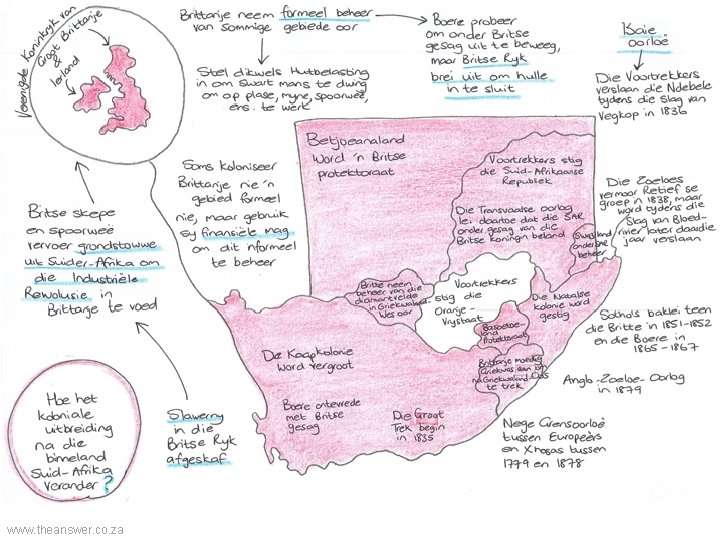 Verenigde Koninkryk van
Groot Brittanje
&
Ierland
Brittanje neem formeel beheer
van sommige gebiede oor
Stel dikwels Hutbelasting
in om swart mans te dwing
om op plase, myne, spoorweë,
ens. te werk
Boere probeer
om onder Britse
gesag uit te beweeg,
maar Britse Ryk
brei uit om hulle
in te sluit
Baie
oorloë
Die Voortrekkers
verslaan die Ndebele
tydens die Slag van
Vegkop in 1836
Die Zoeloes
vermoor Retief se
groep in 1838, maar
word tydens die
Slag van Bloed-
rivier later daardie
jaar verslaan
Sotho's baklei teen
die Britte in 1851-1852
en die Boere in
1865-1867
Anglo-Zoeloe-Oorlog
in 1879
Nege Grensoorloë
tussen Europeërs
en Xhosas tussen
1779 en 1878
Soms koloniseer
Brittanje nie 'n
gebied formeel
nie, maar gebruik
sy finansiële mag
om dit informeel
te beheer
Britse skepe
en spoorweë
vervoer grondstowwe
uit Suider-Afrika om
die Industriële
Rewolusie in
Brittanje te voed
Slawerny
in die
Britse Ryk
afgeskaf
Hoe het
koloniale
uitbreiding
na die
binneland
Suid-Afrika
verander?
Betjoeanaland
word 'n Britse
protektoraat
Voortrekkers stig
die Suid-Afrikaanse
Republiek
Die Transvaalse oorlog
lei daartoe dat die SAR
onder gesag van die
Britse koningin beland
Swaziland
onder SAR
beheer
Britte neem
beheer van die
diamantvelde
in Griekwaland-
Wes oor
Voortrekkers
stig die
Oranje-
Vrystaat
Die Natalse
kolonie word
gestig
Basoetoe-
land
Protektoraat
Brittanje moedig
Griekwas aan om
na Griekwaland-Oos
te trek
Die Kaapkolonie
word vergroot
Boere ontevrede
met Britse
gesag
Die Groot
Trek begin
in 1835
www.theanswer.co.za